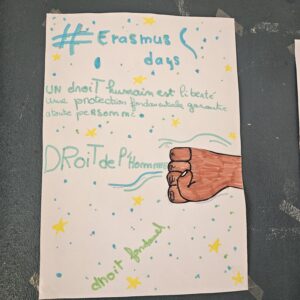 # Erasmus
days
UN droit humain est liberté
une protection fondamentale garantie
à toute personne.
DRoiT de l'Homme
droit fondamental